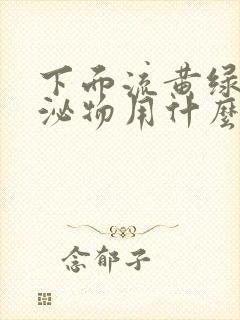 下面流黄绿
泌物用什麽
念郁子